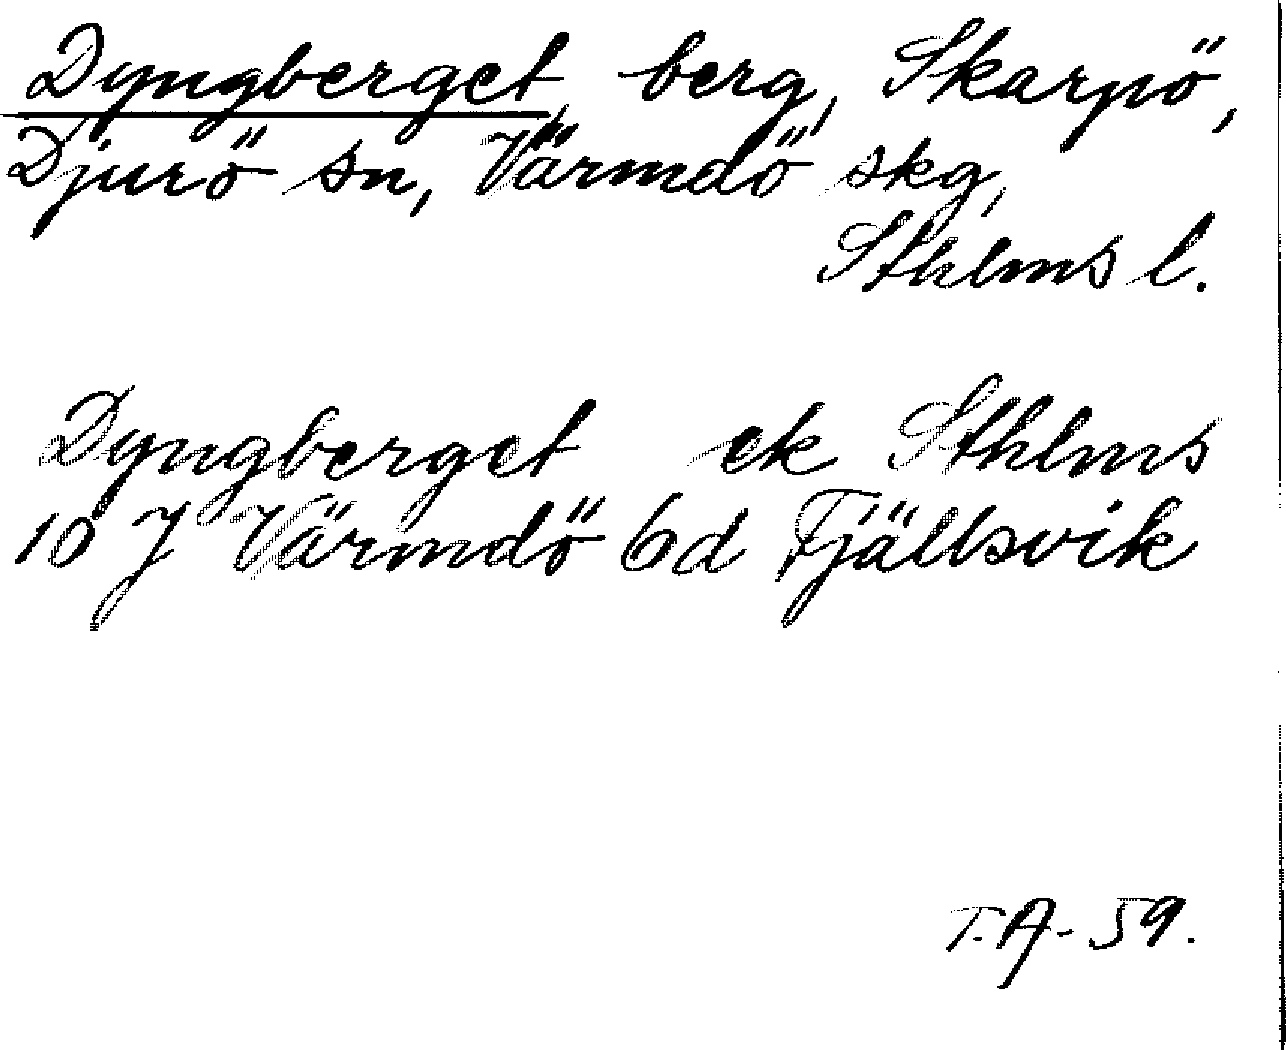 Dyngberget, berg, Skarpö,
Djurö sn, Värmdö skg,
Sthlms l.
Dyngberget ek Sthlms
10 J Värmdö 6d Fjällsvik
T.A-59.